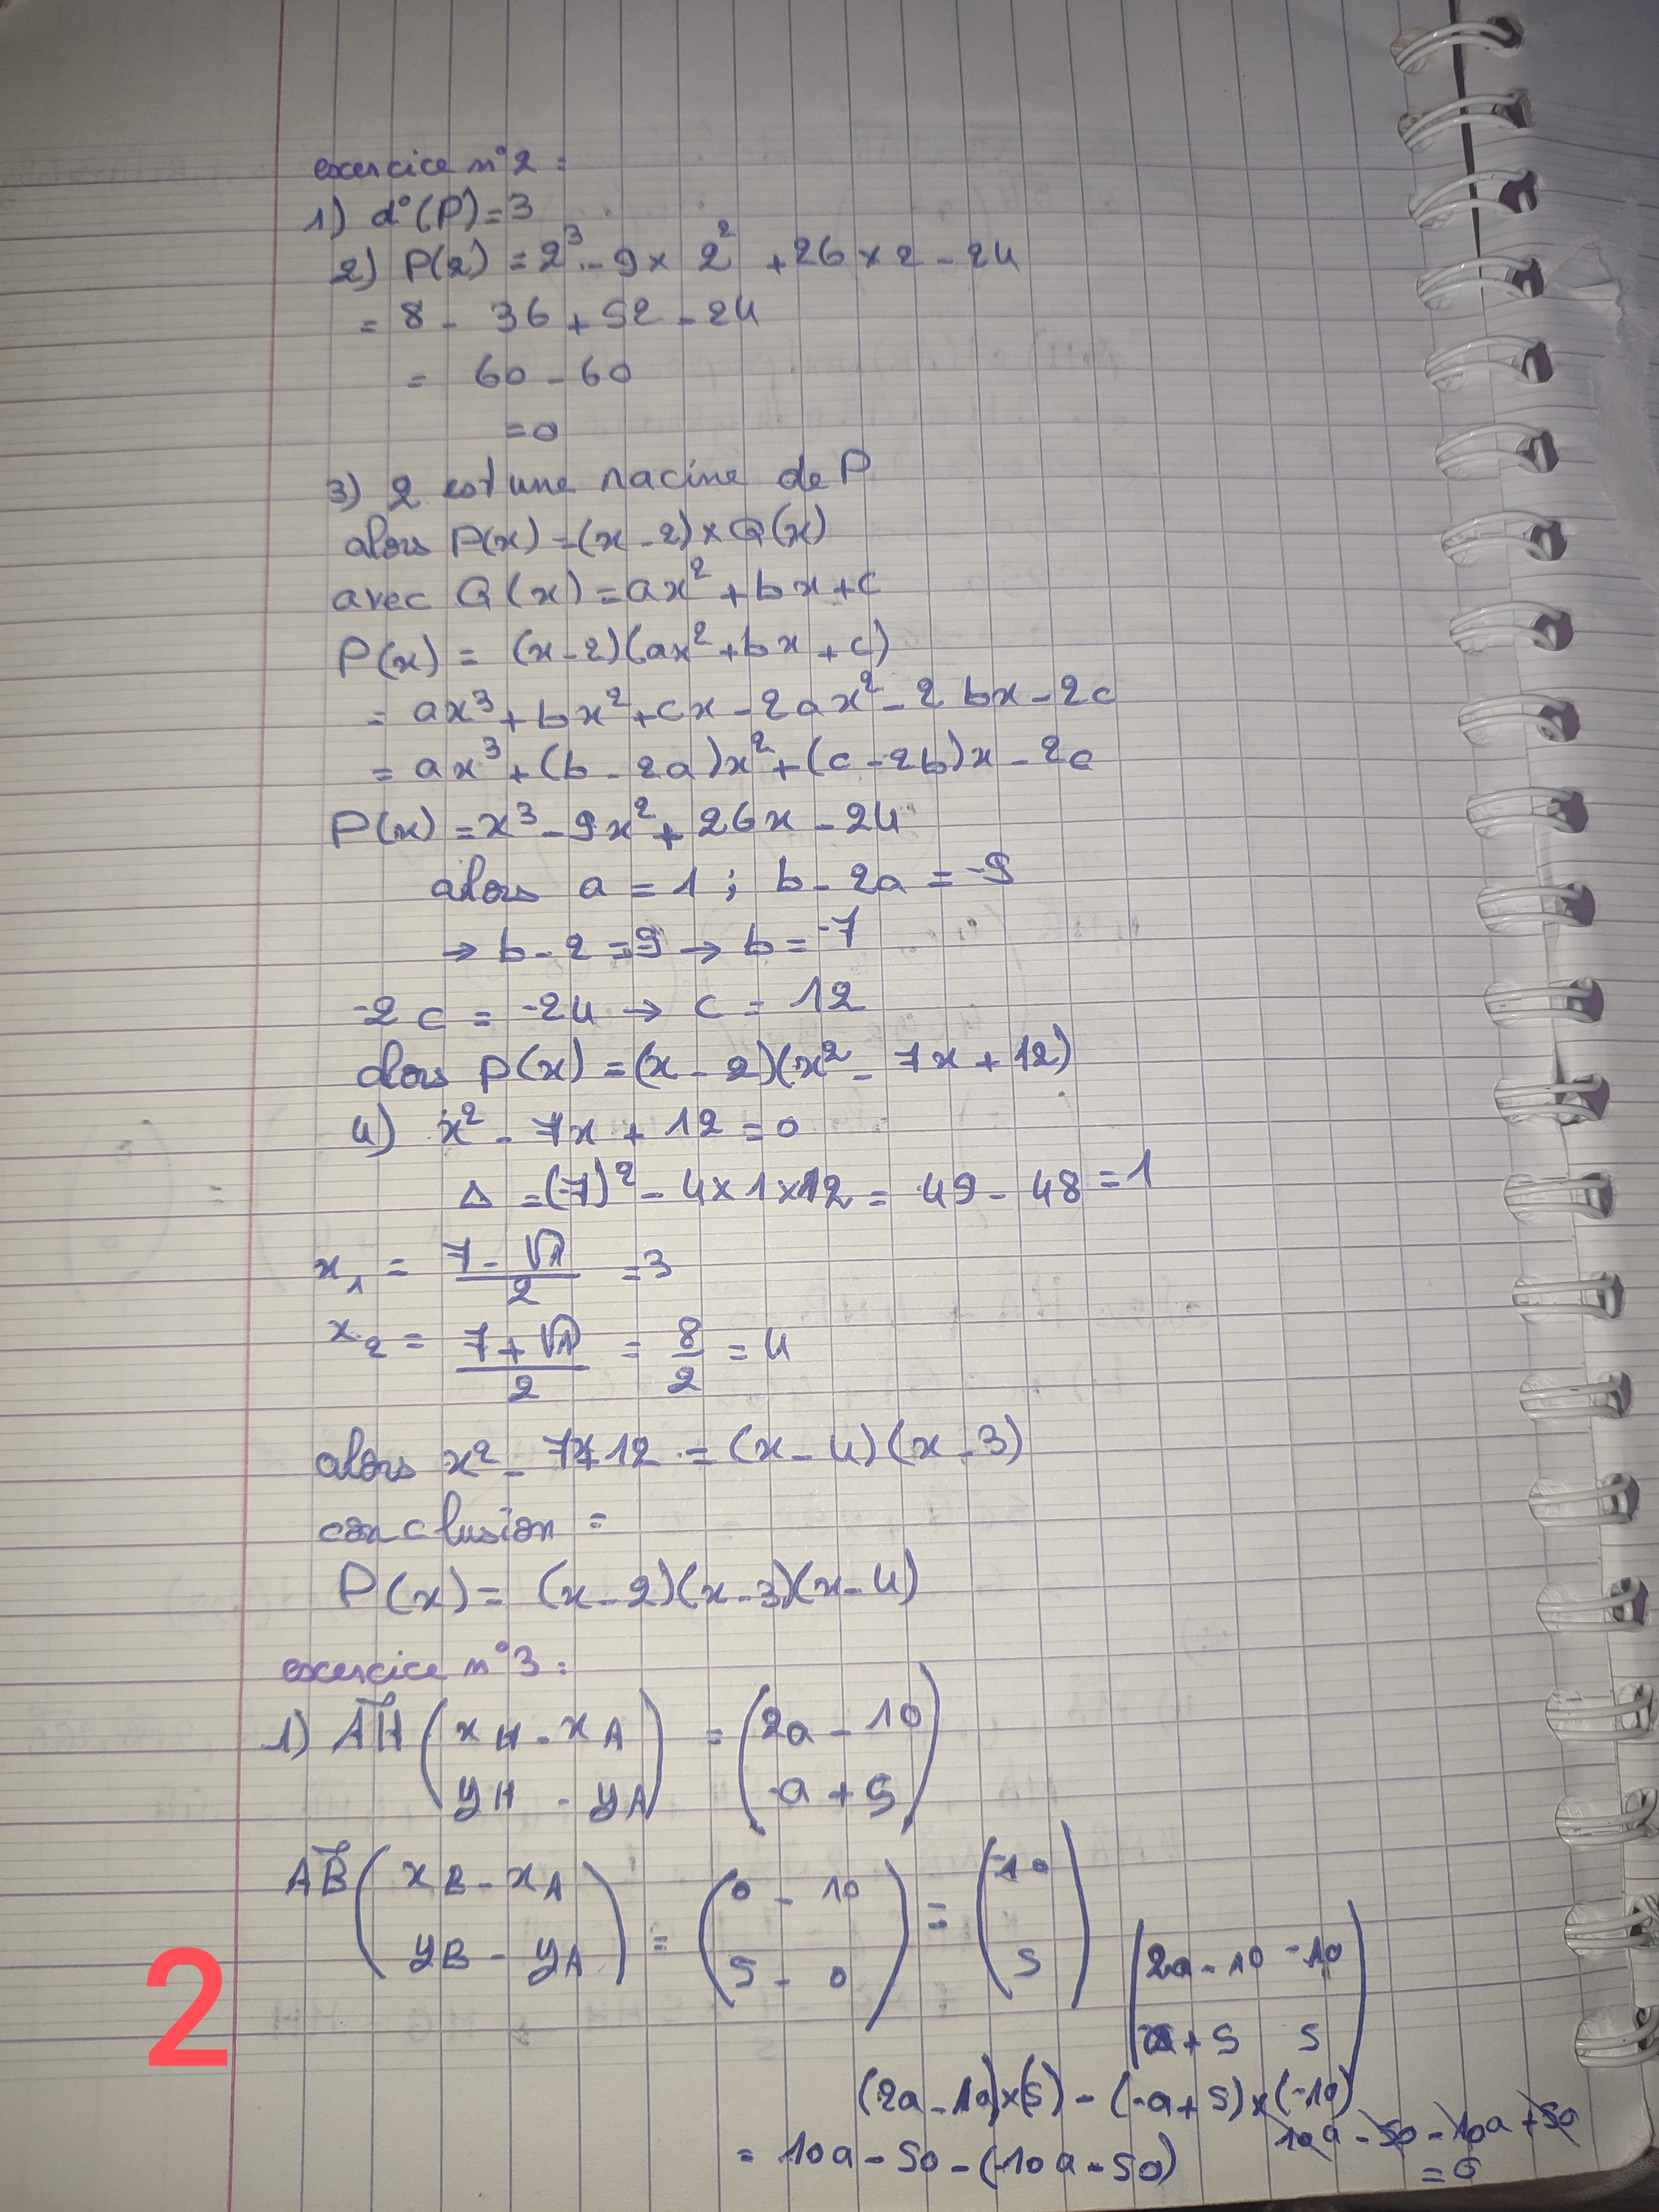 exercice n°2 :
1) d°(P) = 3
2) P(2) = 2³ - 9 x 2² + 26 x 2 - 24
= 8 - 36 + 52 - 24
= 60 - 60
= 0
3) 2 est une racine de P
alors P(x) = (x - 2) x Q(x)
avec Q(x) = ax² + bx + c
P(x) = (x - 2)(ax² + bx + c)
= ax³ + bx² + cx - 2ax² - 2bx - 2c
= ax³ + (b - 2a)x² + (c - 2b)x - 2c
P(x) = x³ - 9x² + 26x - 24
alors a = 1 ; b - 2a = -9
→ b - 2 = -9 → b = -7
-2c = -24 → c = 12
alors P(x) = (x - 2)(x² - 7x + 12)
4) x² - 7x + 12 = 0
Δ = (-7)² - 4x1x12 = 49 - 48 = 1
x₁ = (7 - √1)/2 = 3
x₂ = (7 + √1)/2 = 8/2 = 4
alors x² - 7x+12 = (x - 4)(x - 3)
conclusion =
P(x) = (x - 2)(x - 3)(x - 4)
exercice n°3 :
1) AH (xH - xA = (2a - 10
yH - yA) -a + 5)
AB (xB - xA = (0 - 10 = (-10
yB - yA) 5 - 0) 5)
|2a - 10 -10|
+ 5 5|
(2a - 10)x(5) - (-a + 5)x(-10)
= 10a - 50 - (10a - 50)
10a - 50 - 10a + 50
= 0
2